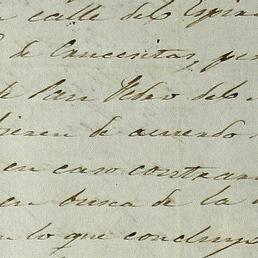 calle del Espir
de Carcesitas, per
de San Pedro del
bieren de acuerdo
en caso contrar
en busca de la
en lo que concluye